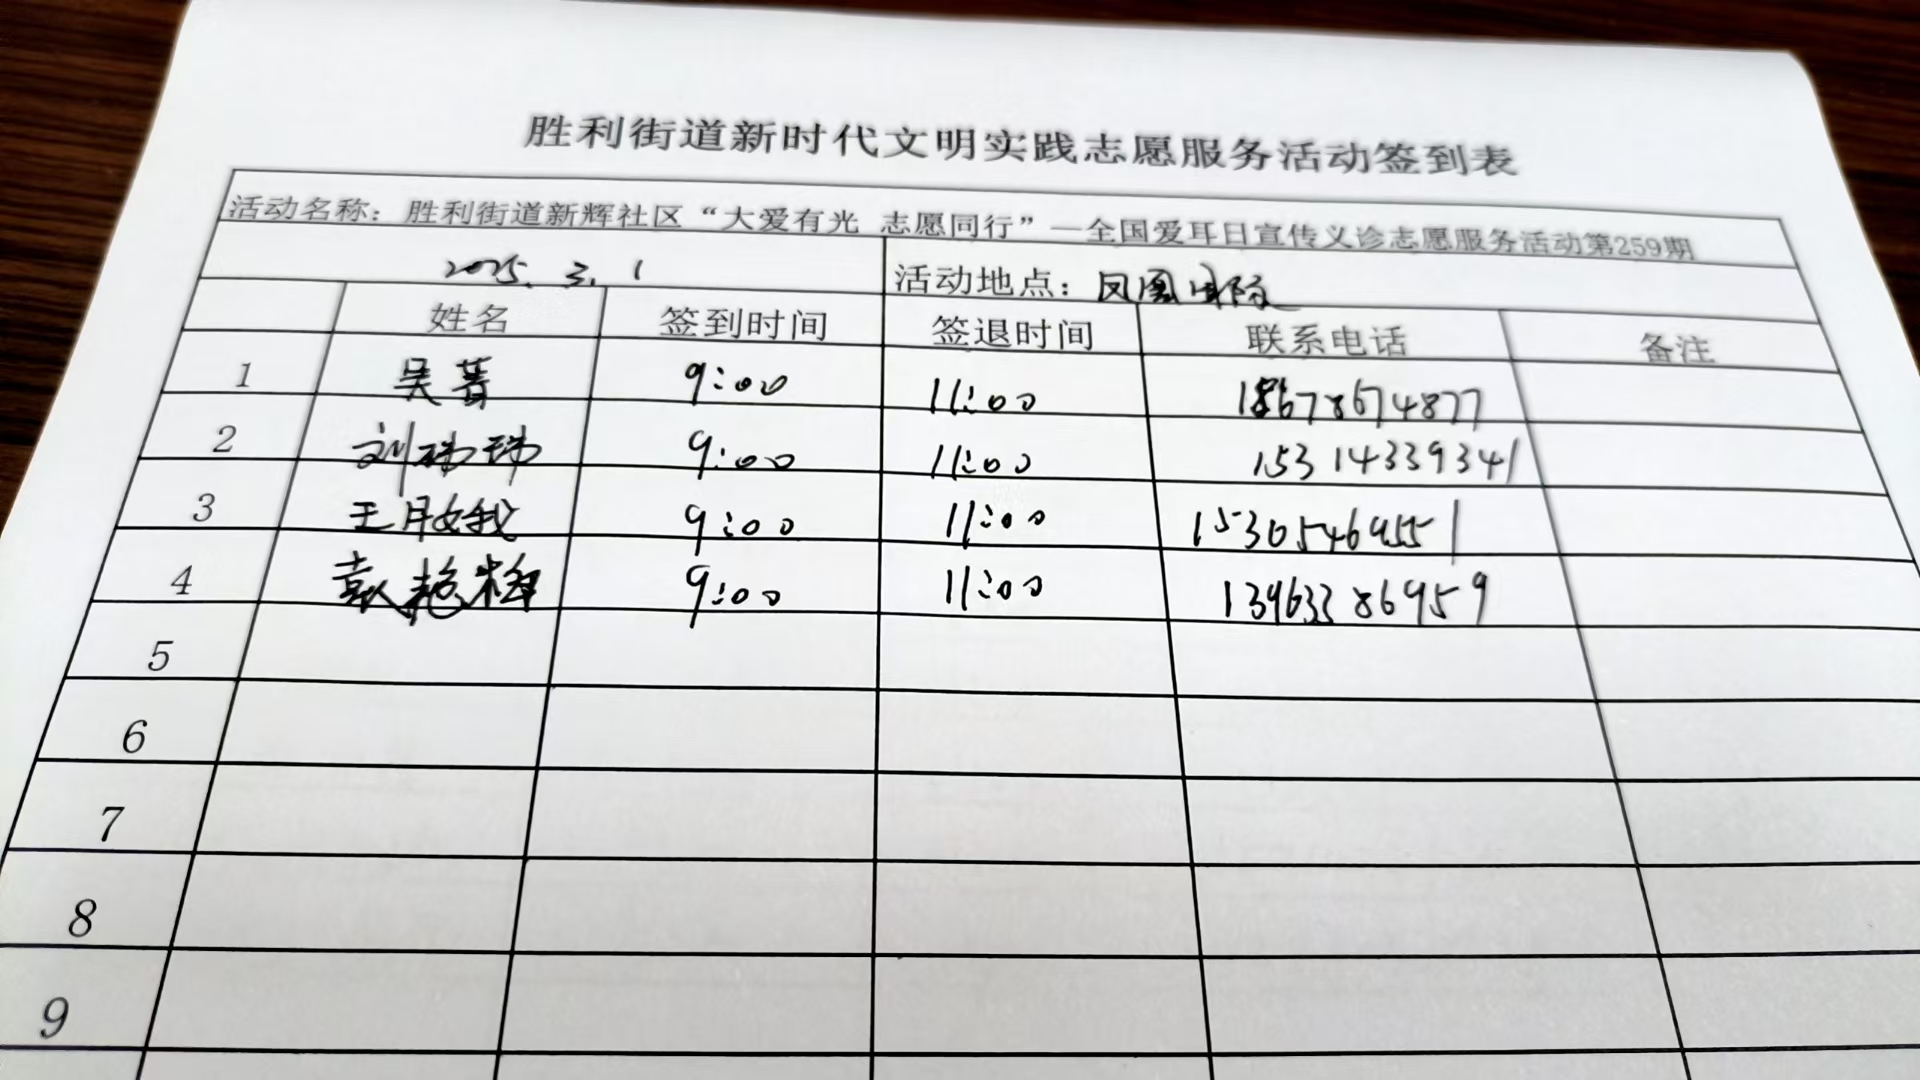 胜利街道新时代文明实践志愿服务活动签到表
活动名称：胜利街道新辉社区“大爱有光 志愿同行”—全国爱耳日宣传义诊志愿服务活动第259期
2025.3.1 活动地点：凤凰
姓名 签到时间 签退时间 联系电话 备注
1 吴菁 9:00 11:00 18678674877
2 刘 9:00 11:00 15314339341
3 王 9:00 11:00 15305469551
4 袁艳梅 9:00 11:00 13963386959
5
6
7
8
9